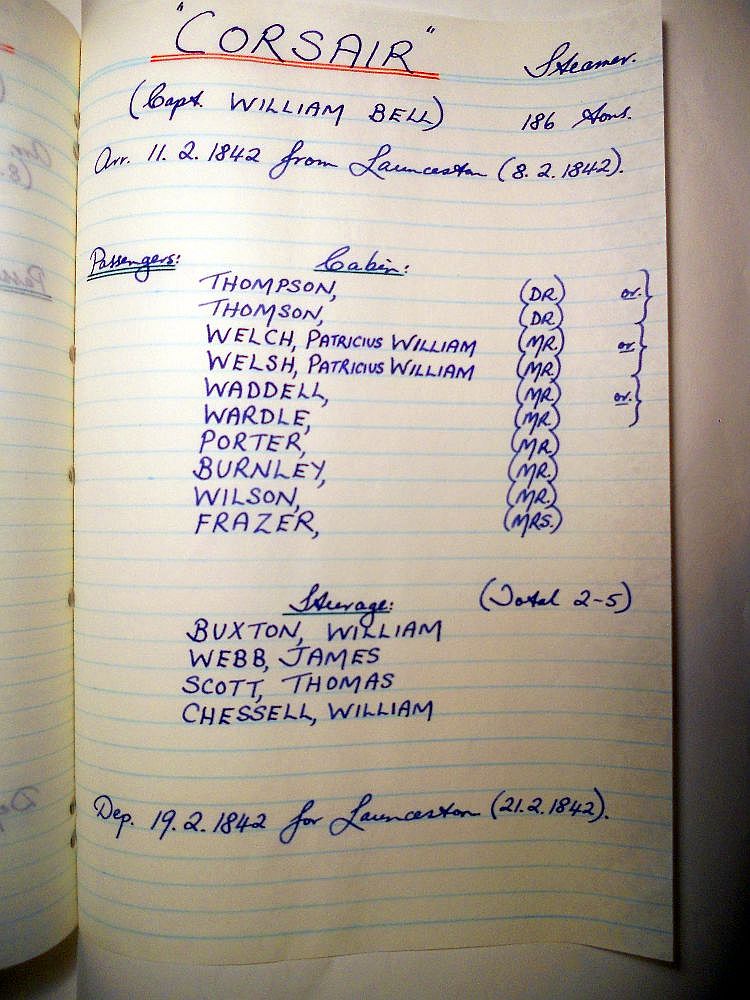 "CORSAIR"
Steamer.
(Capt. WILLIAM BELL) 186 Tons.
Arr. 11. 2. 1842 from Launceston (8. 2. 1842).
Passengers: Cabin:
THOMPSON, (DR.) or.
THOMSON, (DR)
WELCH, PATRICIUS WILLIAM (MR.) or
WELSH, PATRICIUS WILLIAM (MR.
WADDELL, (MR. or.
WARDLE, (MR.
PORTER, (MR.)
BURNLEY, (MR.)
WILSON, (MR.)
FRAZER, (MRS.)
Steerage: (Total 2-5)
BUXTON, WILLIAM
WEBB, JAMES
SCOTT, THOMAS
CHESSELL, WILLIAM
Dep. 19. 2. 1842 for Launceston (21. 2. 1842).